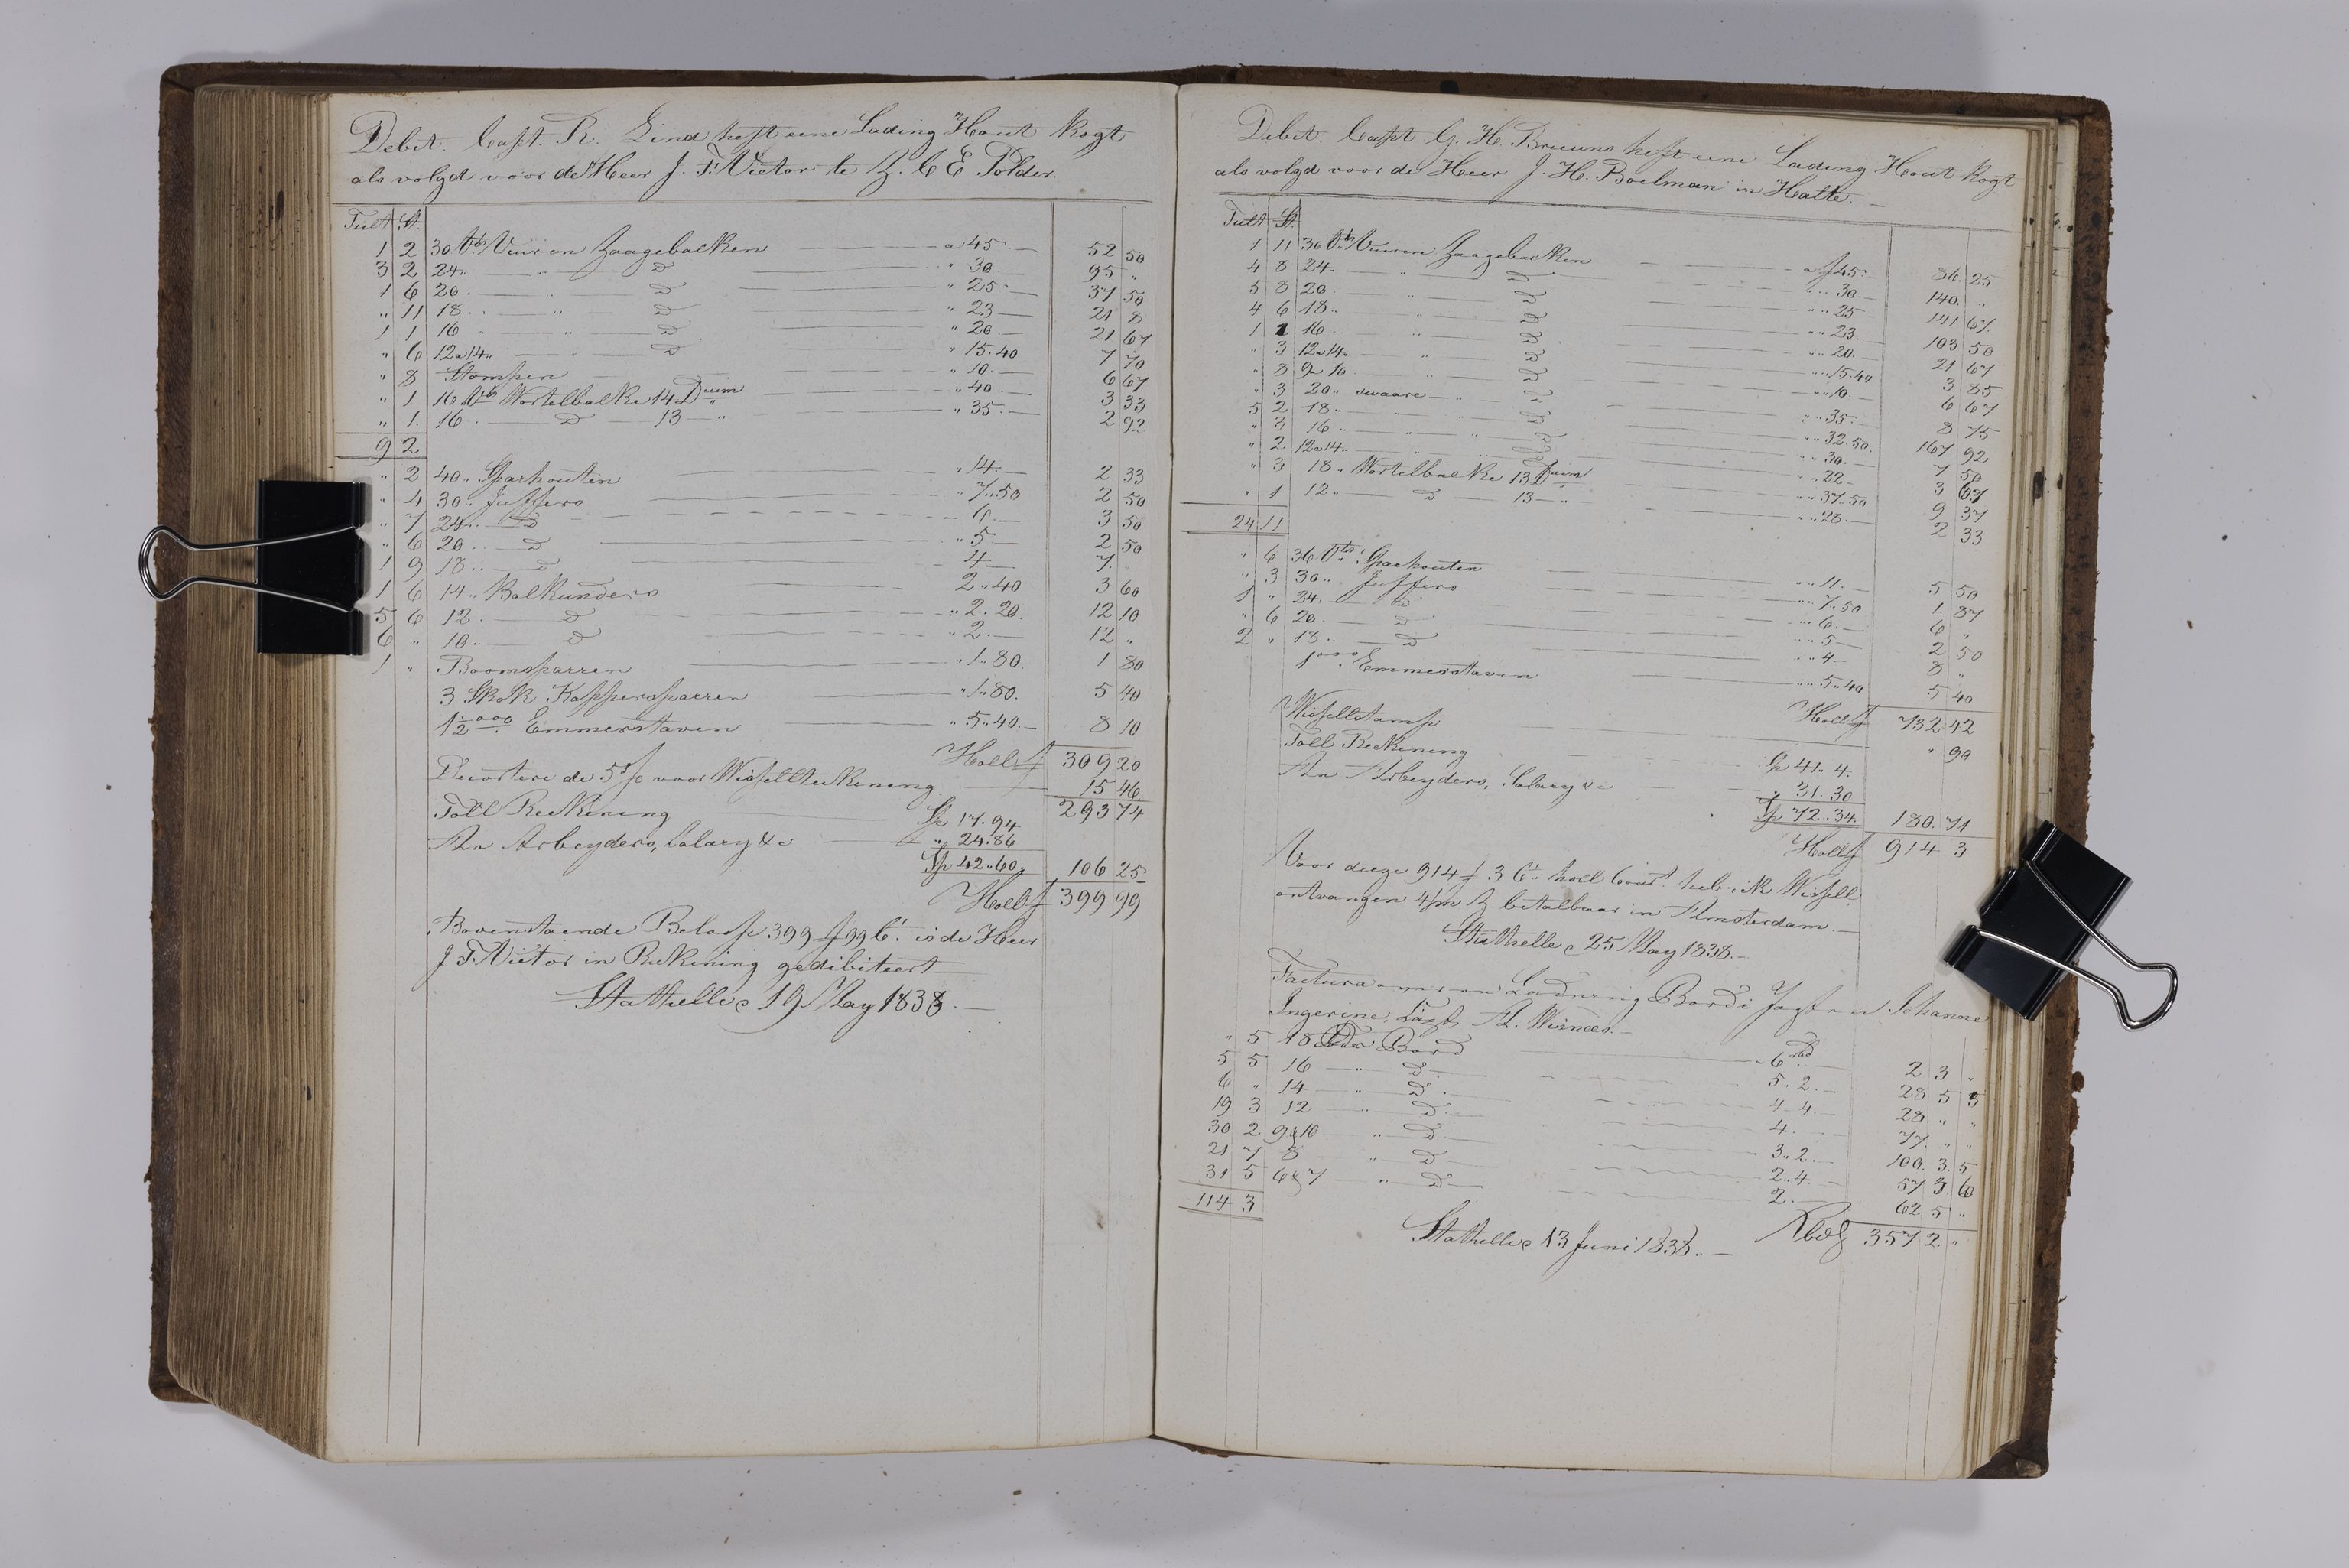 Debit. Capt. R. Zind heft eene Lading Hout kogt
als volgd voor de Heer J. F. Vietor te B. C E Polder.
Tult St.
1 2 30 Vts Vuiren Zaagebalken a 45.— 52 50
3 2 24 " D " 30 — 95 "
1 6 20 " D " 25 — 37 50
" 11 18 " D " 23 — 21 8
1 1 16 " D " 20 — 21 67
" 6 12 a 14 " D " 15.40 7 70
" 8 Stompen " 10. — 6 67
" 1 16 Vts Wortelbalke 14 Duim " 40 3 33
" 1. 16 " D 13 — " " 35. — 2 92
9 2
" 2 40 " Sparhouten " 14. — 2 33
" 4 30 " Juffers " 7.50 2 50
" 7 24 " D 6. — 3 50
" 6 20 " D " 5 — 2 50
1 9 18 " D 4 — 7. "
1 6 14 " Balkunders 2 " 40 3 60
5 6 12 " D " 2. 20. 12 10
6 " 10 " D " 2. — 12 "
1 " Boomsparren " 1. 80. 1 80
3 Skok Kappersparren " 1 " 80. 5 40
1½ ooo Emmerstaven " 5 " 40. — 8 10
Holl f 309 20
de 5 pf voor Wissellteikening 15 46
293 74
Toll Reckening Sp 17. 94
An Arbeyders, Salary &c " 24. 86
Sp 42 " 60 106 25
Holl f 399 99
Bovenstaende Beloop 399 f 99 Ct. is de Heer
J F. Vietor in Rekening gedibiteert
Stathelle 19 May 1838. —
Debit. Capt G. H. Bruuns heft eene Lading Hout kogt
als volgd voor de Heer J. H. Boelman in Halte. —
Tult St.
1 11 30 Vts Vuiren Zaagebalken a f 45. — 86 25
4 8 24 " D " 30 — 140. "
5 8 20 " D " 25 141 67.
4 6 18 " D " 23. 103 50
1 1 16 " D " 20. — 21 67
" 3 12 a 14 " D " 15.40 3 85
" 8 9 a 10 D " 10. — 6 67
" 3 20 " swaare D " 35. — 8 75
5 2 18 " D " 32.50. 167 92
" 3 16 " D " 30. — 7 50
" 2 12 a 14 " D " 22 — 3 67
" 3 18 " Wortelbalke 13 Duim " 37.50 9 37
" 1 12 " D 13 — " " 28. — 2 33
24 11
" 6 36 Vts Sparhouten " 11. 5 50
" 3 30 " Juffers " 7.50 1. 87
1 " 24. D " 6. — 6 "
" 6 20. D " 5 — 2 50
2 " 18 " D " 4 — 8 "
1 ooo Emmerstaven " 5 " 40 5 40
Holl f 732 42
Wissellstamp " 90
Toll Reckening Sp 41. 4.
An Arbeyders, Salary &c " 31. 30
Sp 72 " 34. 180. 71
Holl f 914 3
Voor deeze 914 f 3 Ct. holl Cour.t heb ik Wissell
ontvangen 4/m betalbaar in Amsterdam. —
Stathelle 25 May 1838. —
Factura Ladning Bord i Jagten Johanne
Ingerine,
" 5 18 Bord 6 2 3 "
5 5 16 " D 5. 2. — 28 5 3
6 " 14 " D 4 4 — 28 " "
19 3 12 " D 4. 77. " "
30 2 9 & 10 " D 3. 2. — 100. 3. 5
21 7 8 " D 2. 4. 57 3. 6
31 5 6 & 7 " D 2. — 62 5 "
114 3
Stathelle 13 Juni 1838. — Rbd 357 2 "